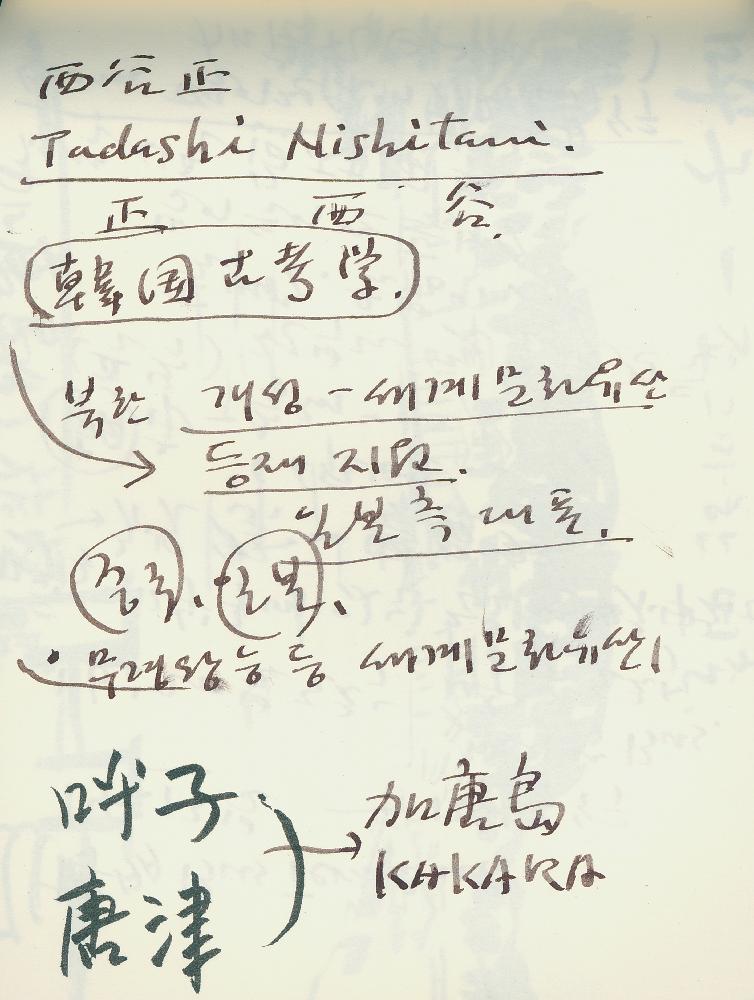 西谷正
Tadashi Nishitani.
正 西 谷.
韓国 古考学.
북한 개성 - 세계문화유산
등재 지원.
일본측 대표.
중국. 일본.
• 무령왕능 등 세계문화유산
呼子
唐津
加唐島
KAKARA